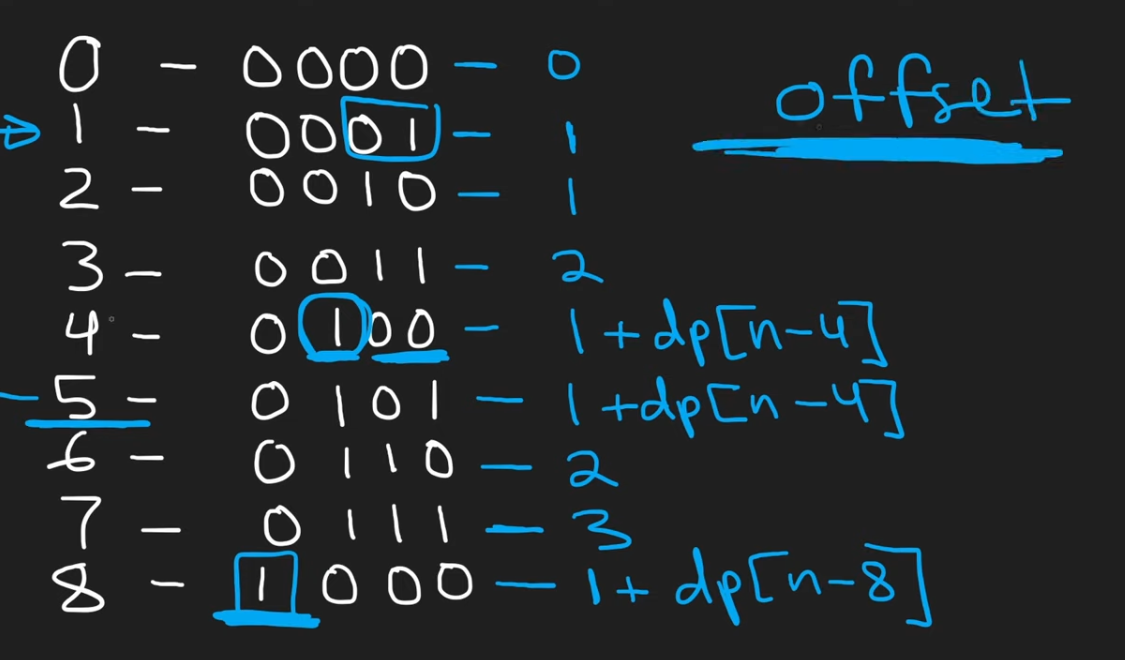 0 - 0000 - 0
offset
1 - 0001 - 1
2 - 0010 - 1
3 - 0011 - 2
4 - 0100 - 1 + dp[n-4]
5 - 0101 - 1 + dp[n-4]
6 - 0110 - 2
7 - 0111 - 3
8 - 1000 - 1 + dp[n-8]